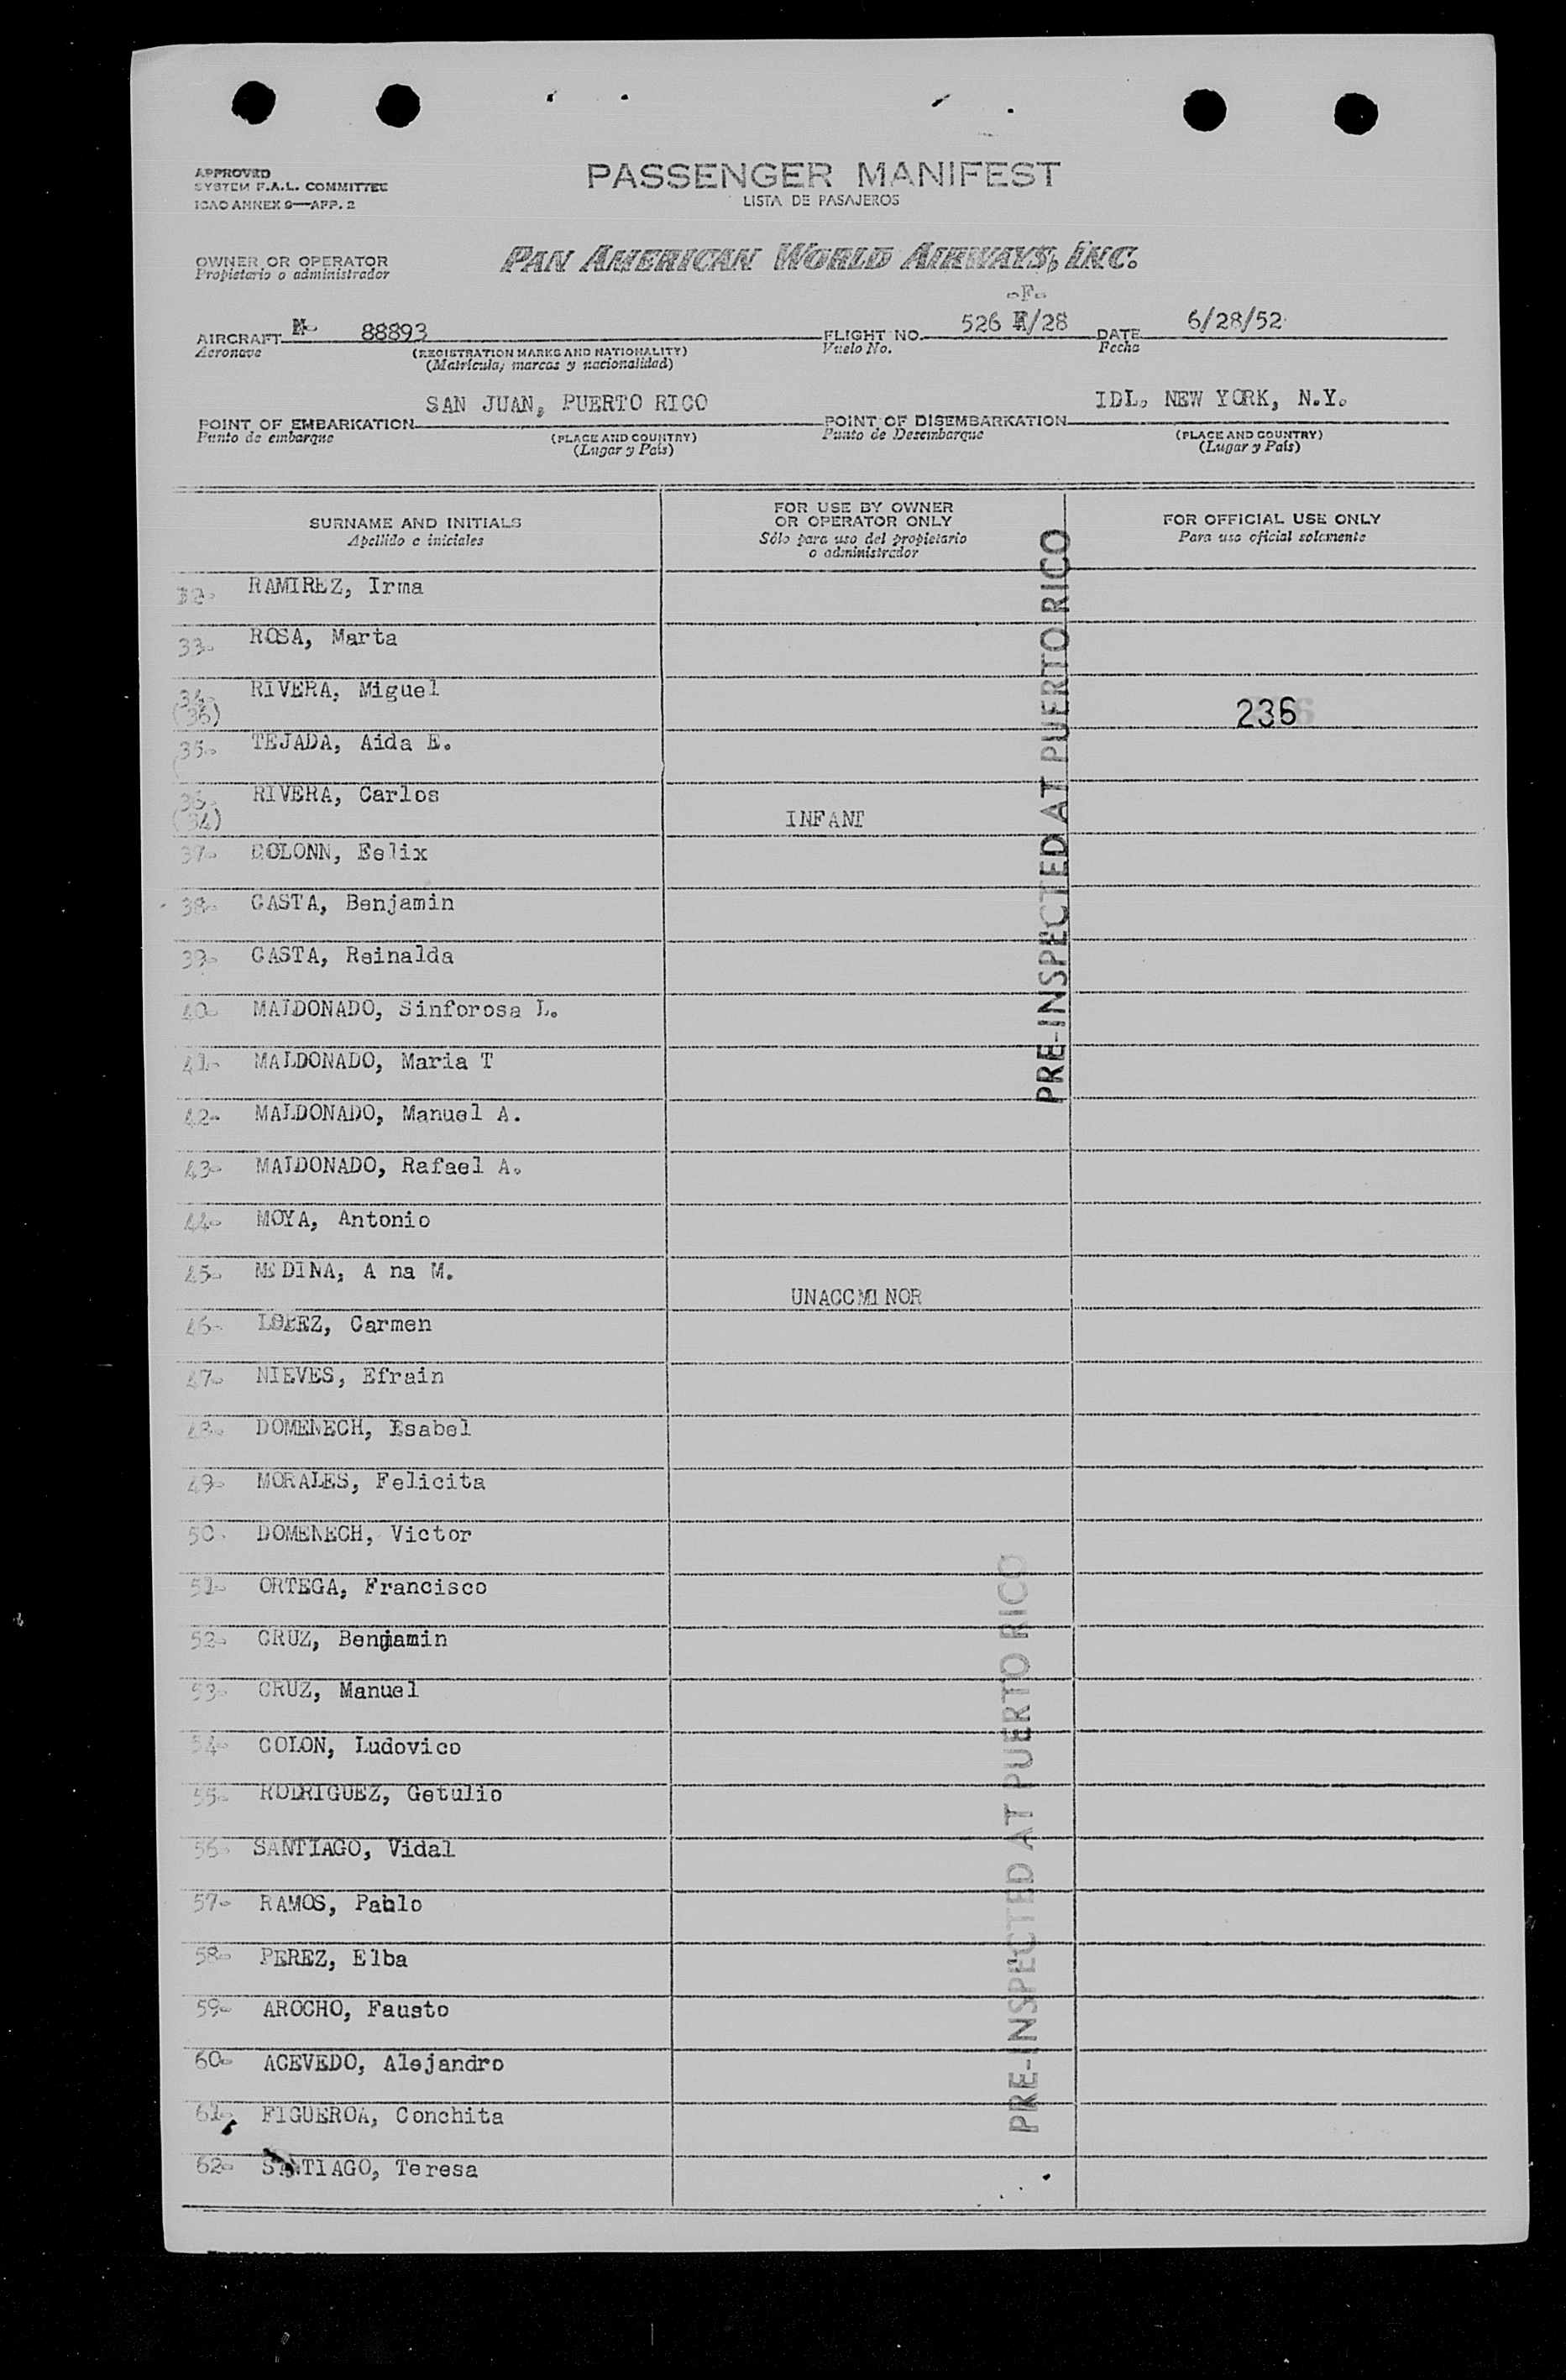 APPROVED
SYSTEM F.A.L. COMMITTEE
ICAO ANNEX 9—APP. 2
PASSENGER MANIFEST
LISTA DE PASAJEROS
OWNER OR OPERATOR
Propietario o administrador
PAN AMERICAN WORLD AIRWAYS, INC.
-F-
AIRCRAFT N- 88893
Aeronave
(REGISTRATION MARKS AND NATIONALITY)
(Matrícula, marcas y nacionalidad)
FLIGHT NO. 526 /28
Vuelo No.
DATE 6/28/52
Fecha
POINT OF EMBARKATION SAN JUAN, PUERTO RICO
Punto de embarque
(PLACE AND COUNTRY)
(Lugar y País)
POINT OF DISEMBARKATION IDL. NEW YORK, N.Y.
Punto de Desembarque
(PLACE AND COUNTRY)
(Lugar y País)
SURNAME AND INITIALS
Apellido e iniciales
FOR USE BY OWNER
OR OPERATOR ONLY
Sólo para uso del propietario
o administrador
FOR OFFICIAL USE ONLY
Para uso oficial solamente
32- RAMIREZ, Irma
33- ROSA, Marta
34- RIVERA, Miguel
(36)
236
35- TEJADA, Aida E.
36- RIVERA, Carlos
(34)
INFANT
37- COLONN, Felix
38- CASTA, Benjamin
39- CASTA, Reinalda
40- MALDONADO, Sinforosa L.
41- MALDONADO, Maria T
42- MALDONADO, Manuel A.
43- MALDONADO, Rafael A.
44- MOYA, Antonio
45- MEDINA, A na M.
UNACCMINOR
46- LOPEZ, Carmen
47- NIEVES, Efrain
48- DOMENECH, Isabel
49- MORALES, Felicita
50- DOMENECH, Victor
51- ORTEGA, Francisco
52- CRUZ, Benjamin
53- CRUZ, Manuel
54- COLON, Ludovico
55- RODRIGUEZ, Getulio
56- SANTIAGO, Vidal
57- RAMOS, Pablo
58- PEREZ, Elba
59- AROCHO, Fausto
60- ACEVEDO, Alejandro
61- FIGUEROA, Conchita
62- SANTIAGO, Teresa
PRE-INSPECTED AT PUERTO RICO
PRE-INSPECTED AT PUERTO RICO